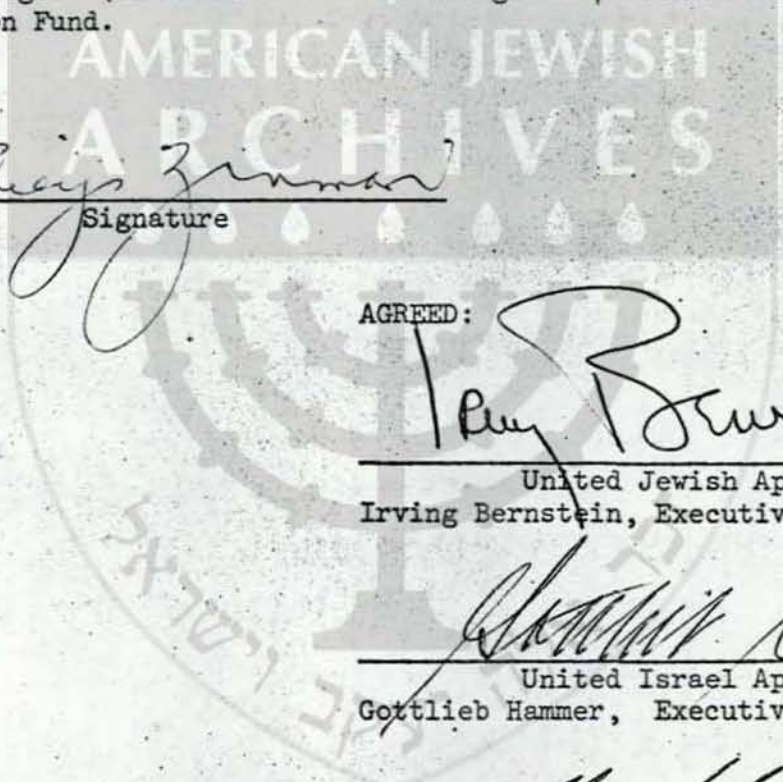 n Fund.
AMERICAN JEWISH
ARCHIVES
Zinman
Signature
AGREED:
Irving
United Jewish Ap
Irving Bernstein, Executiv
Gottlieb
United Israel Ap
Gottlieb Hammer, Executiv